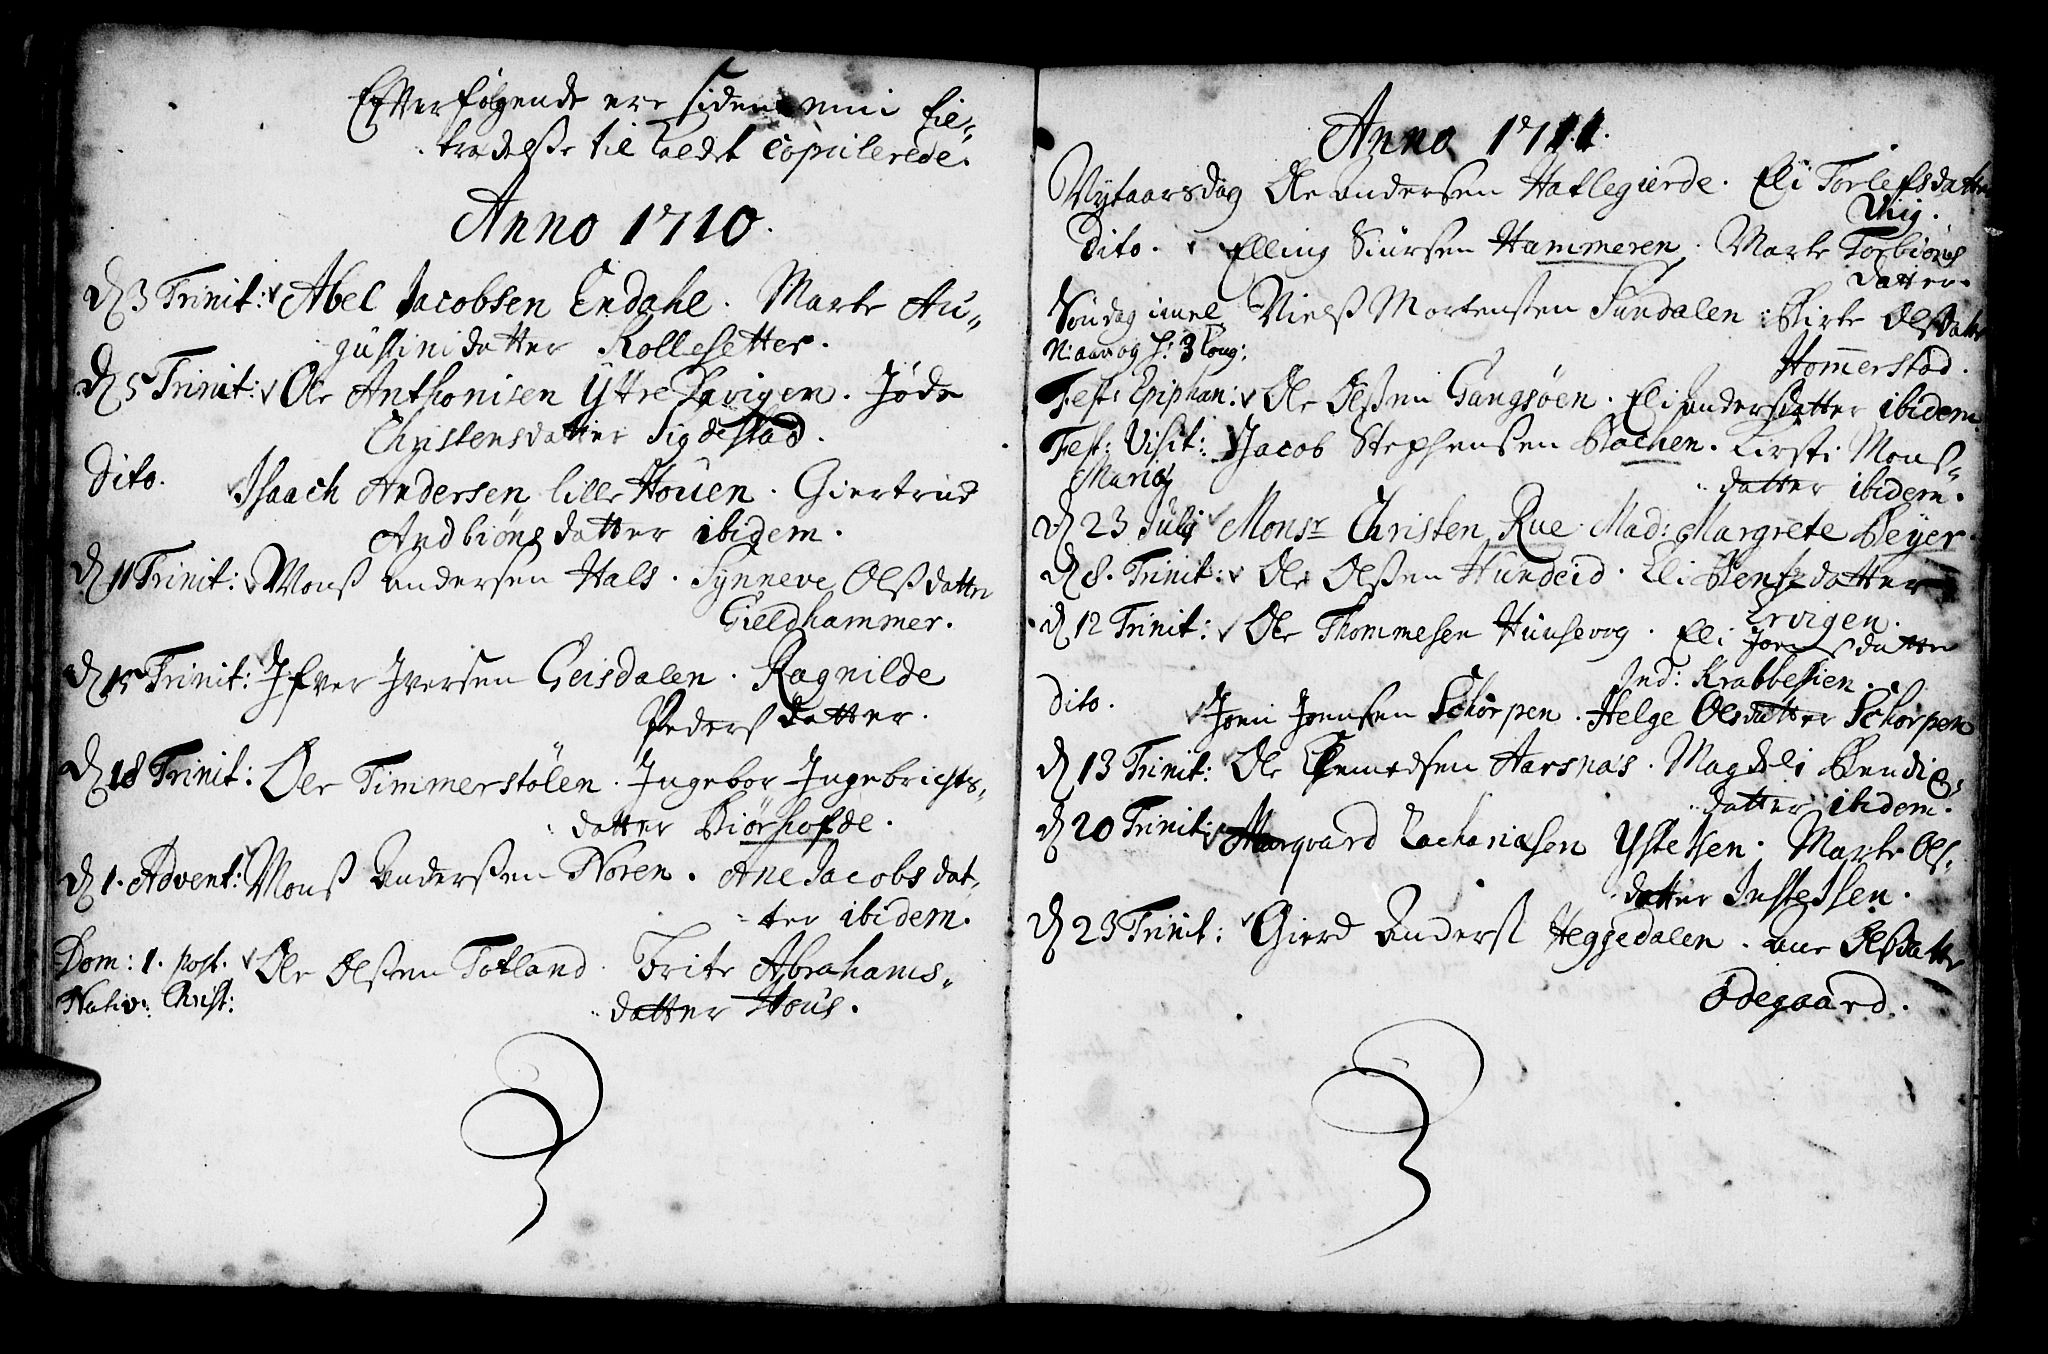 Efterfølgende ere siden min til-
tredelse til Kaldet Copulerede.
Anno 1710.
D 3 Trinit: Abel Jacobsen Endahl. Marte Au-
gustinidatter Rollesetter.
D 5 Trinit: Ole Anthonisen Yttre Farigen. Jøde
Christensdatter Sigdestad.
Dito. Isaach Andersen lille Houen. Giertrud
Andbiønsdatter ibidem.
D 11 Trinit: Monß Andersen Hals. Synneve Olßdatter
Gieldhammer.
D 15 Trinit: Ifver Iversen Geisdalen. Ragnilde
Pedersdatter.
D 18 Trinit: Ole Timmerstølen. Ingebor Ingebrichts-
datter Biørhofde.
D 1. Advent: Monß Anderßen Noren. Ane Jacobsdat-
ter ibidem.
Dom: 1. post. Ole Olßen Totland. Brite Abrahams-
Nativ: Christ: datter Hous.
Anno 1711.
Nytaarsdag Ole Andersen Hatlegierde. Eli Torlefsdatter
Viig.
Dito. Elling Siursen Hammeren. Marte Torbiøns
datter.
Søndag imel Nielß Mortensen Sundalen. Birte Olsdatter
N: aar og h: 3 Kong: Hommerstad.
Fest: Epiphan: Ole Olßen Gangsøen. Eli Andersdatter ibidem.
Fest: Visit: Jacob Stephensen Bachen. Kirsti Mons-
Mariæ datter ibidem.
D 23 Julij Monsr Christen Rue. Mad: Margrete Beyer.
D 8. Trinit: Ole Olßen Hundeid. Eli Bentzdatter
Ervigen.
D 12 Trinit: Ole Thommesen Hunsevog. Eli Joensdatter
Ind: Krabbestien.
Dito. Joen Joensen Schorpen. Helge Olsdatter Schorpen
D 13 Trinit: Ole Clemedsen Aarsnas. Magdeli Bendix-
datter ibidem.
D 20 Trinit: Marqvard Zachariasen Ystetsen. Marte Ols-
datter Instetsen.
D 23 Trinit: Gierd Anderß Heggedalen. Ane Olßdatter
Ødegaard.